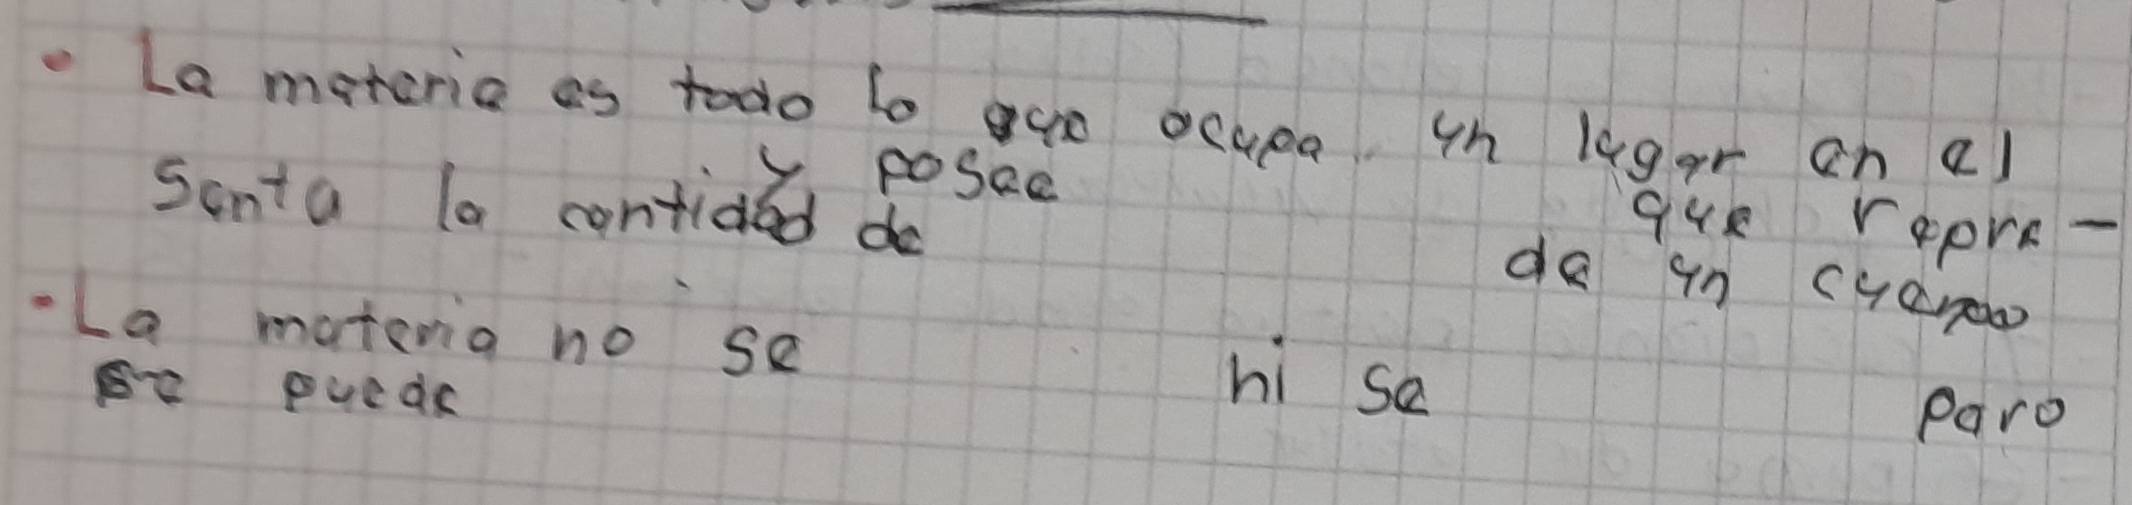 • La materia es todo lo que ocupa un lugar en el
y posee que repre-
senta la cantidad de de un cuerpo
• La materia no se ni se pero
se puede